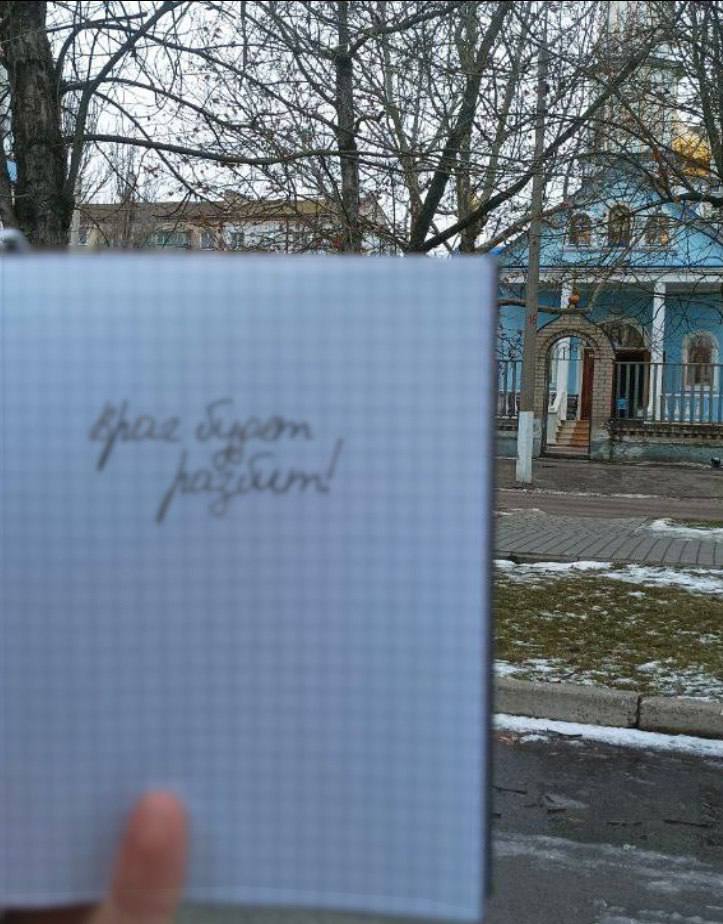 Враг будет
разбит!